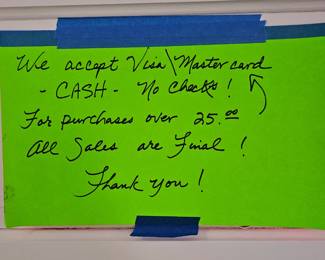 We accept Visa\Mastercard
- CASH - No Checks!
For purchases over 25.00
All Sales are Final!
Thank you!